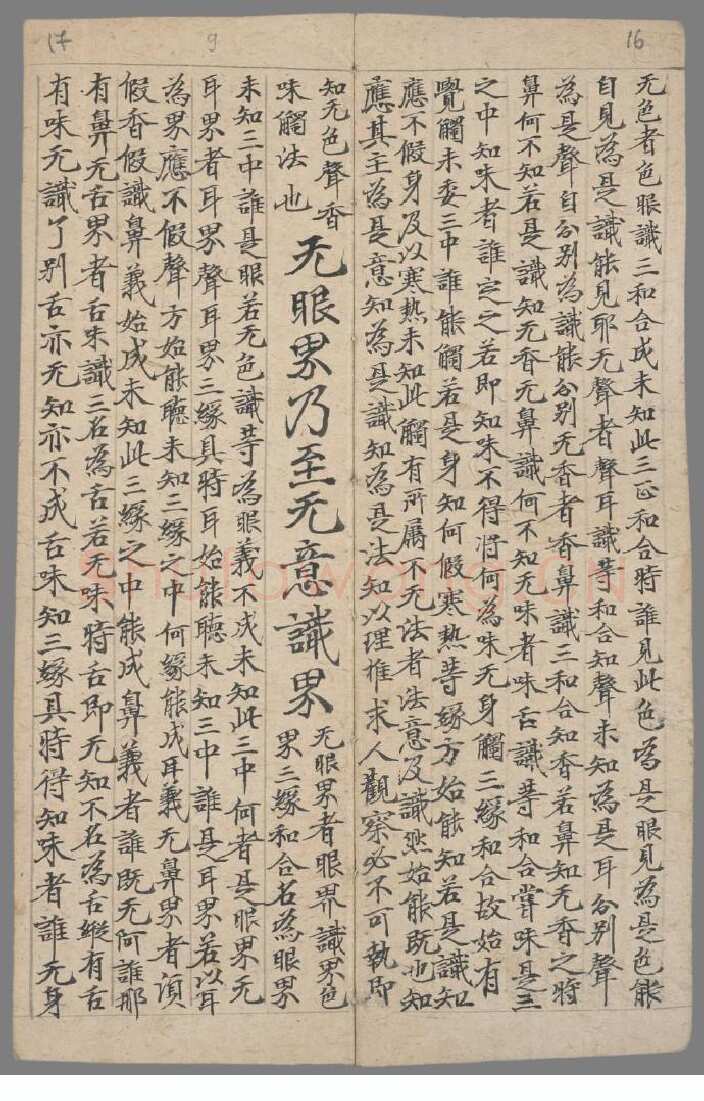 16
无色者色眼識三和合成未知此三正和合時誰見此色為是眼見為是色能
自見為是識能見耶无聲者聲耳識等和合知聲未知為是耳分別聲
為是聲自分別為識能分別无香者香鼻識三和合知香若鼻知无香之時
鼻何不知若是識知无香无鼻識何不知无味者味舌識等和合甞味是三
之中知味者誰定之若即知味不得將何為味无身觸三緣和合故始有
覺觸未委三中誰能觸若是身知何假寒熱等緣方始能知若是識知
應不假身及以寒熱未知此觸有所属不无法者法意及識然始能既也知
應其主為是意知為是識知為是法知以理推求人觀察必不可執即
9
17
知无色聲香
味觸法也
无眼界乃至无意識界
无眼界者眼界識界色
界三緣和合名為眼界
未知三中誰是眼若无色識等為眼義不成未知此三中何者是眼界无
耳界者耳界聲耳界三緣具時耳始能聽未知三中誰是耳界若以耳
為界應不假聲方始能聽未知三緣之中何緣能成耳義无鼻界者湏
假香假識鼻義始成未知此三緣之中能成鼻義者誰既无何誰那
有鼻无舌界者舌味識三名為舌若无味時舌即无知不名為舌縱有舌
有味无識了别舌亦无知亦不成舌味知三緣具時得知味者誰 无身